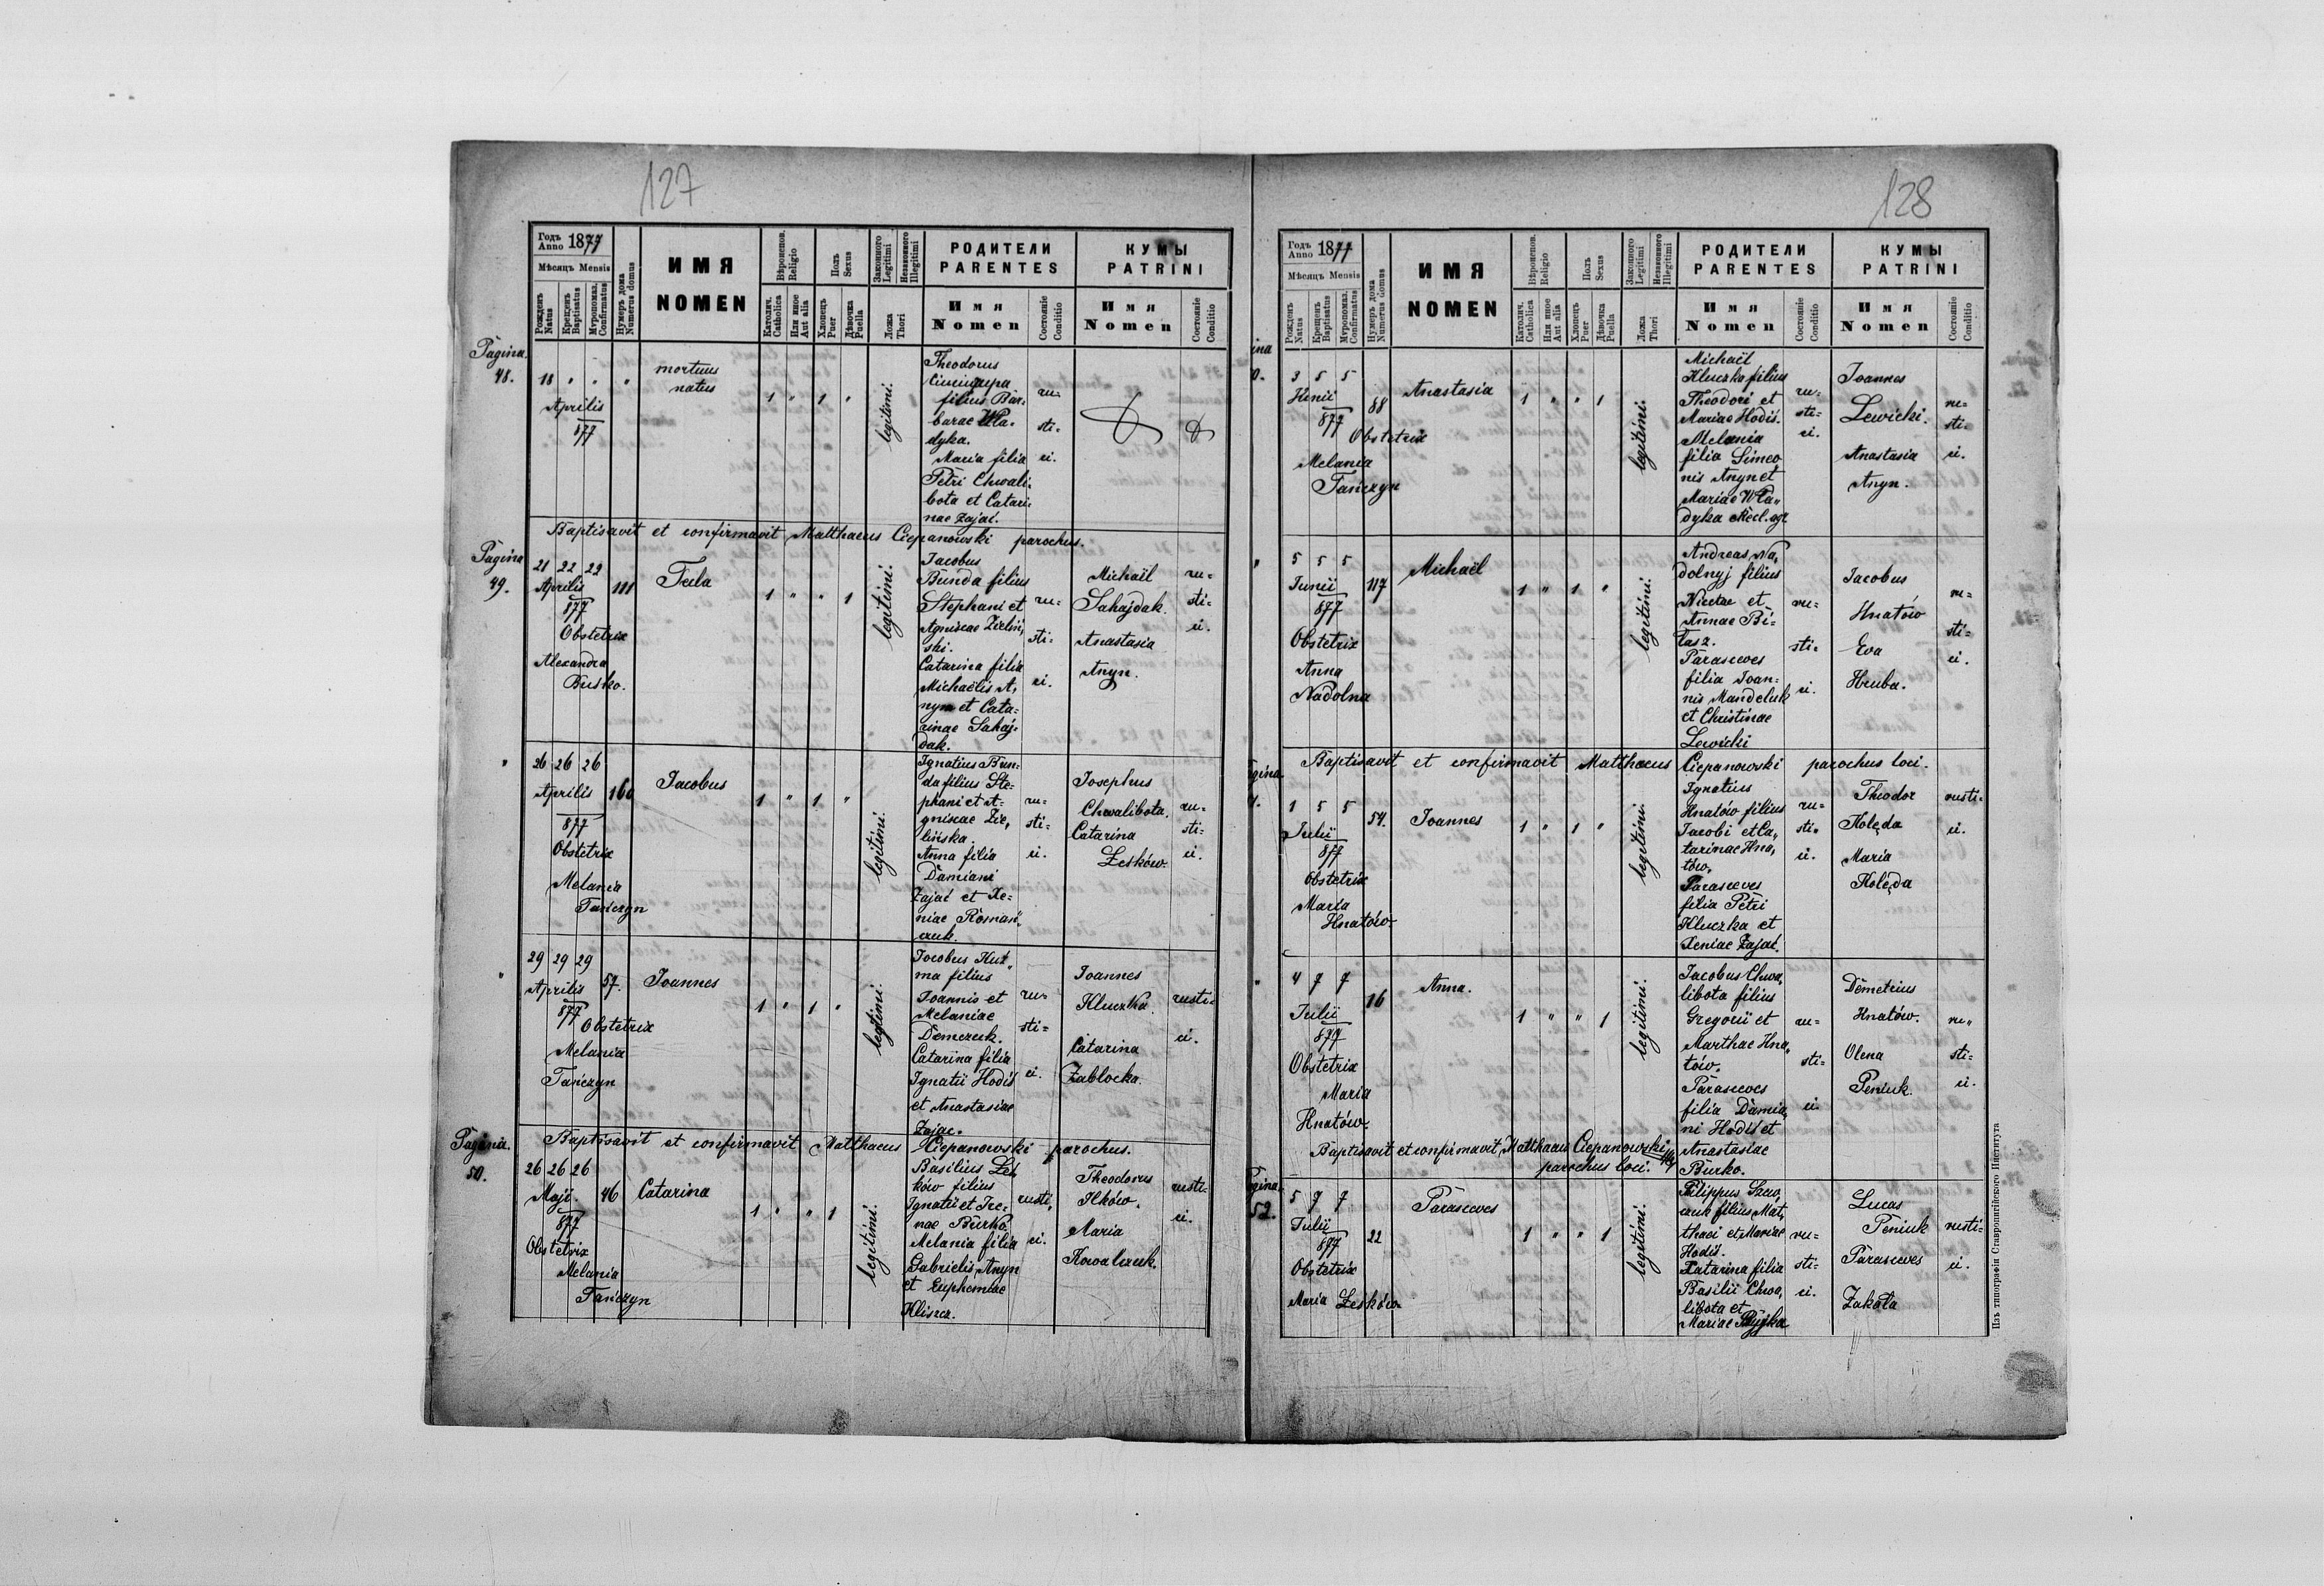 127
Годъ Anno 1877
Мѣсяцъ Mensis
Рожденъ Natus
Крещенъ Baptisatus
Мѵропомаз. Confirmatus
Нумеръ дома Numerus domus
ИМЯ
NOMEN
Вѣроисповѣд. Religio
Католич. Catholica
Или иное Aut alia
Полъ Sexus
Хлопецъ Puer
Дѣвочка Puella
Законного Legitimi
Незаконного Illegitimi
Ложа Thori
РОДИТЕЛИ
PARENTES
Имя
Nomen
Состоянie
Conditio
КУМЫ
PATRINI
Имя
Nomen
Состоянie
Conditio
Pagina
48.
18 " " "
Aprilis
877
mortuus
natus
1 " 1 "
legitimi.
Theodorus
filius Bar-
barae Wła-
dyka.
Maria filia
Petri Chwali-
bota et Catari-
nae Zajać.
ru-
sti-
ci.
Baptisavit et confirmavit Matthaeus Ciepanowski parochus.
Pagina
49.
21 22 22
Aprilis 111
877
Obstetrix
Alexandra
Buśko.
Tecla
1 " " 1
legitimi.
Jacobus
Bunda filius
Stephani et
Agniscae Zieliń-
ski.
Catarina filia
Michaëlis A-
nyn et Cata-
rinae Sahaj-
dak.
ru-
sti-
ci.
Michaïl
Sahajdak.
Anastasia
Anyn.
ru-
sti-
ci.
"
26 26 26
Aprilis 160
877
Obstetrix
Melania
Tańczyn
Jacobus
1 " 1 "
legitimi.
Ignatius Bun-
da filius Ste-
phani et A-
gniscae Zie-
lińska.
Anna filia
Damiani
Zajać et Xe-
niae Romań-
czuk.
ru-
sti-
ci.
Josephus
Chwalibota.
Catarina
Leśków.
ru-
sti-
ci.
"
29 29 29
Aprilis 57.
877
Obstetrix
Melania
Tańczyn
Joannes
1 " 1 "
legitimi.
Jacobus Kuź-
ma filius
Joannis et
Melaniae
Demczuk.
Catarina filia
Ignatii Hodiś
et Anastasiae
Zajac.
ru-
sti-
ci.
Joannes
Kluczka.
Catarina
Zablocka.
rusti-
ci.
Baptisavit et confirmavit Matthaeus Ciepanowski parochus.
Pagina.
50.
26 26 26
Maji. 46
877
Obstetrix
Melania
Tańczyn
Catarina
1 " " 1
legitimi.
Basilius Leś-
ków filius
Ignatii et Ire-
nae Burko.
Melania filia
Gabrielis Anyn
et Euphemiae
Kliszcz.
rusti-
ci.
Theodorus
Ilków.
Maria
Kowalczuk.
rusti-
ci.
128
Годъ Anno 1877
Мѣсяцъ Mensis
Рожденъ Natus
Крещенъ Baptisatus
Мѵропомаз. Confirmatus
Нумеръ дома Numerus domus
ИМЯ
NOMEN
Вѣроисповѣд. Religio
Католич. Catholica
Или иное Aut alia
Полъ Sexus
Хлопецъ Puer
Дѣвочка Puella
Законного Legitimi
Незаконного Illegitimi
Ложа Thori
РОДИТЕЛИ
PARENTES
Имя
Nomen
Состоянie
Conditio
КУМЫ
PATRINI
Имя
Nomen
Состоянie
Conditio
ina
0.
3 5 5
Junii 88
877
Obstetrix
Melania
Tańczyn
Anastasia
1 " " 1
legitimi.
Michaël
Kluczka filius
Theodori et
Mariae Hodiś.
Melania
filia Simeo
nis Anyn et
Mariae Wła-
dyka
ru-
sti-
ci.
Joannes
Lewicki.
Anastasia
Anyn.
ru-
sti-
ci.
"
5 5 5
Junii 117
877
Obstetrix
Anna
Nadolna
Michaël
1 " 1 "
legitimi.
Andreas Na-
dolnyj filius
Nicetae et
Annae Bi-
łasz.
Parasceves
filia Joan-
nis Mandeluk
et Christinae
Lewicki
ru-
sti-
ci.
Jacobus
Hnatów
Eva
Hruba.
ru-
sti-
ci.
Baptisavit et confirmavit Matthaeus Ciepanowski parochus loci.
gina
1.
1 5 5
Julii 54.
877
Obstetrix
Maria
Hnatów.
Joannes
1 " 1 "
legitimi.
Ignatius
Hnatów filius
Jacobi et Ca-
tarinae Hna-
tów.
Parasceves
filia Petri
Kluczka et
Xeniae Zajać.
ru-
sti-
ci.
Theodor
Kolęda
Maria
Kolęda
rusti-
ci.
"
4 7 7
Julii 16
877
Obstetrix
Maria
Hnatów.
Anna.
1 " " 1
legitimi.
Jacobus Chwa-
libota filius
Gregorii et
Marthae Hna-
tów.
Parasceves
filia Damia-
ni Hodiś et
Anastasiae
Burko.
ru-
sti-
ci.
Demetrius
Hnatów.
Olena
Peniuk.
ru-
sti-
ci.
Baptisavit et confirmavit Matthaeus Ciepanowski
parochus loci.
gina
52.
5 7 7
Julii 22
877
Obstetrix
Maria Leśków
Parasceves
1 " " 1
legitimi.
Filippus Szew-
czuk filius Mat-
thaei et Mariae
Hodiś.
Catarina filia
Basilii Chwa-
libota et
Mariae
ru-
sti-
ci.
Lucas
Peniuk
Parasceves
Zakota
rusti-
ci.
Изъ типографіи Ставропигійского Института